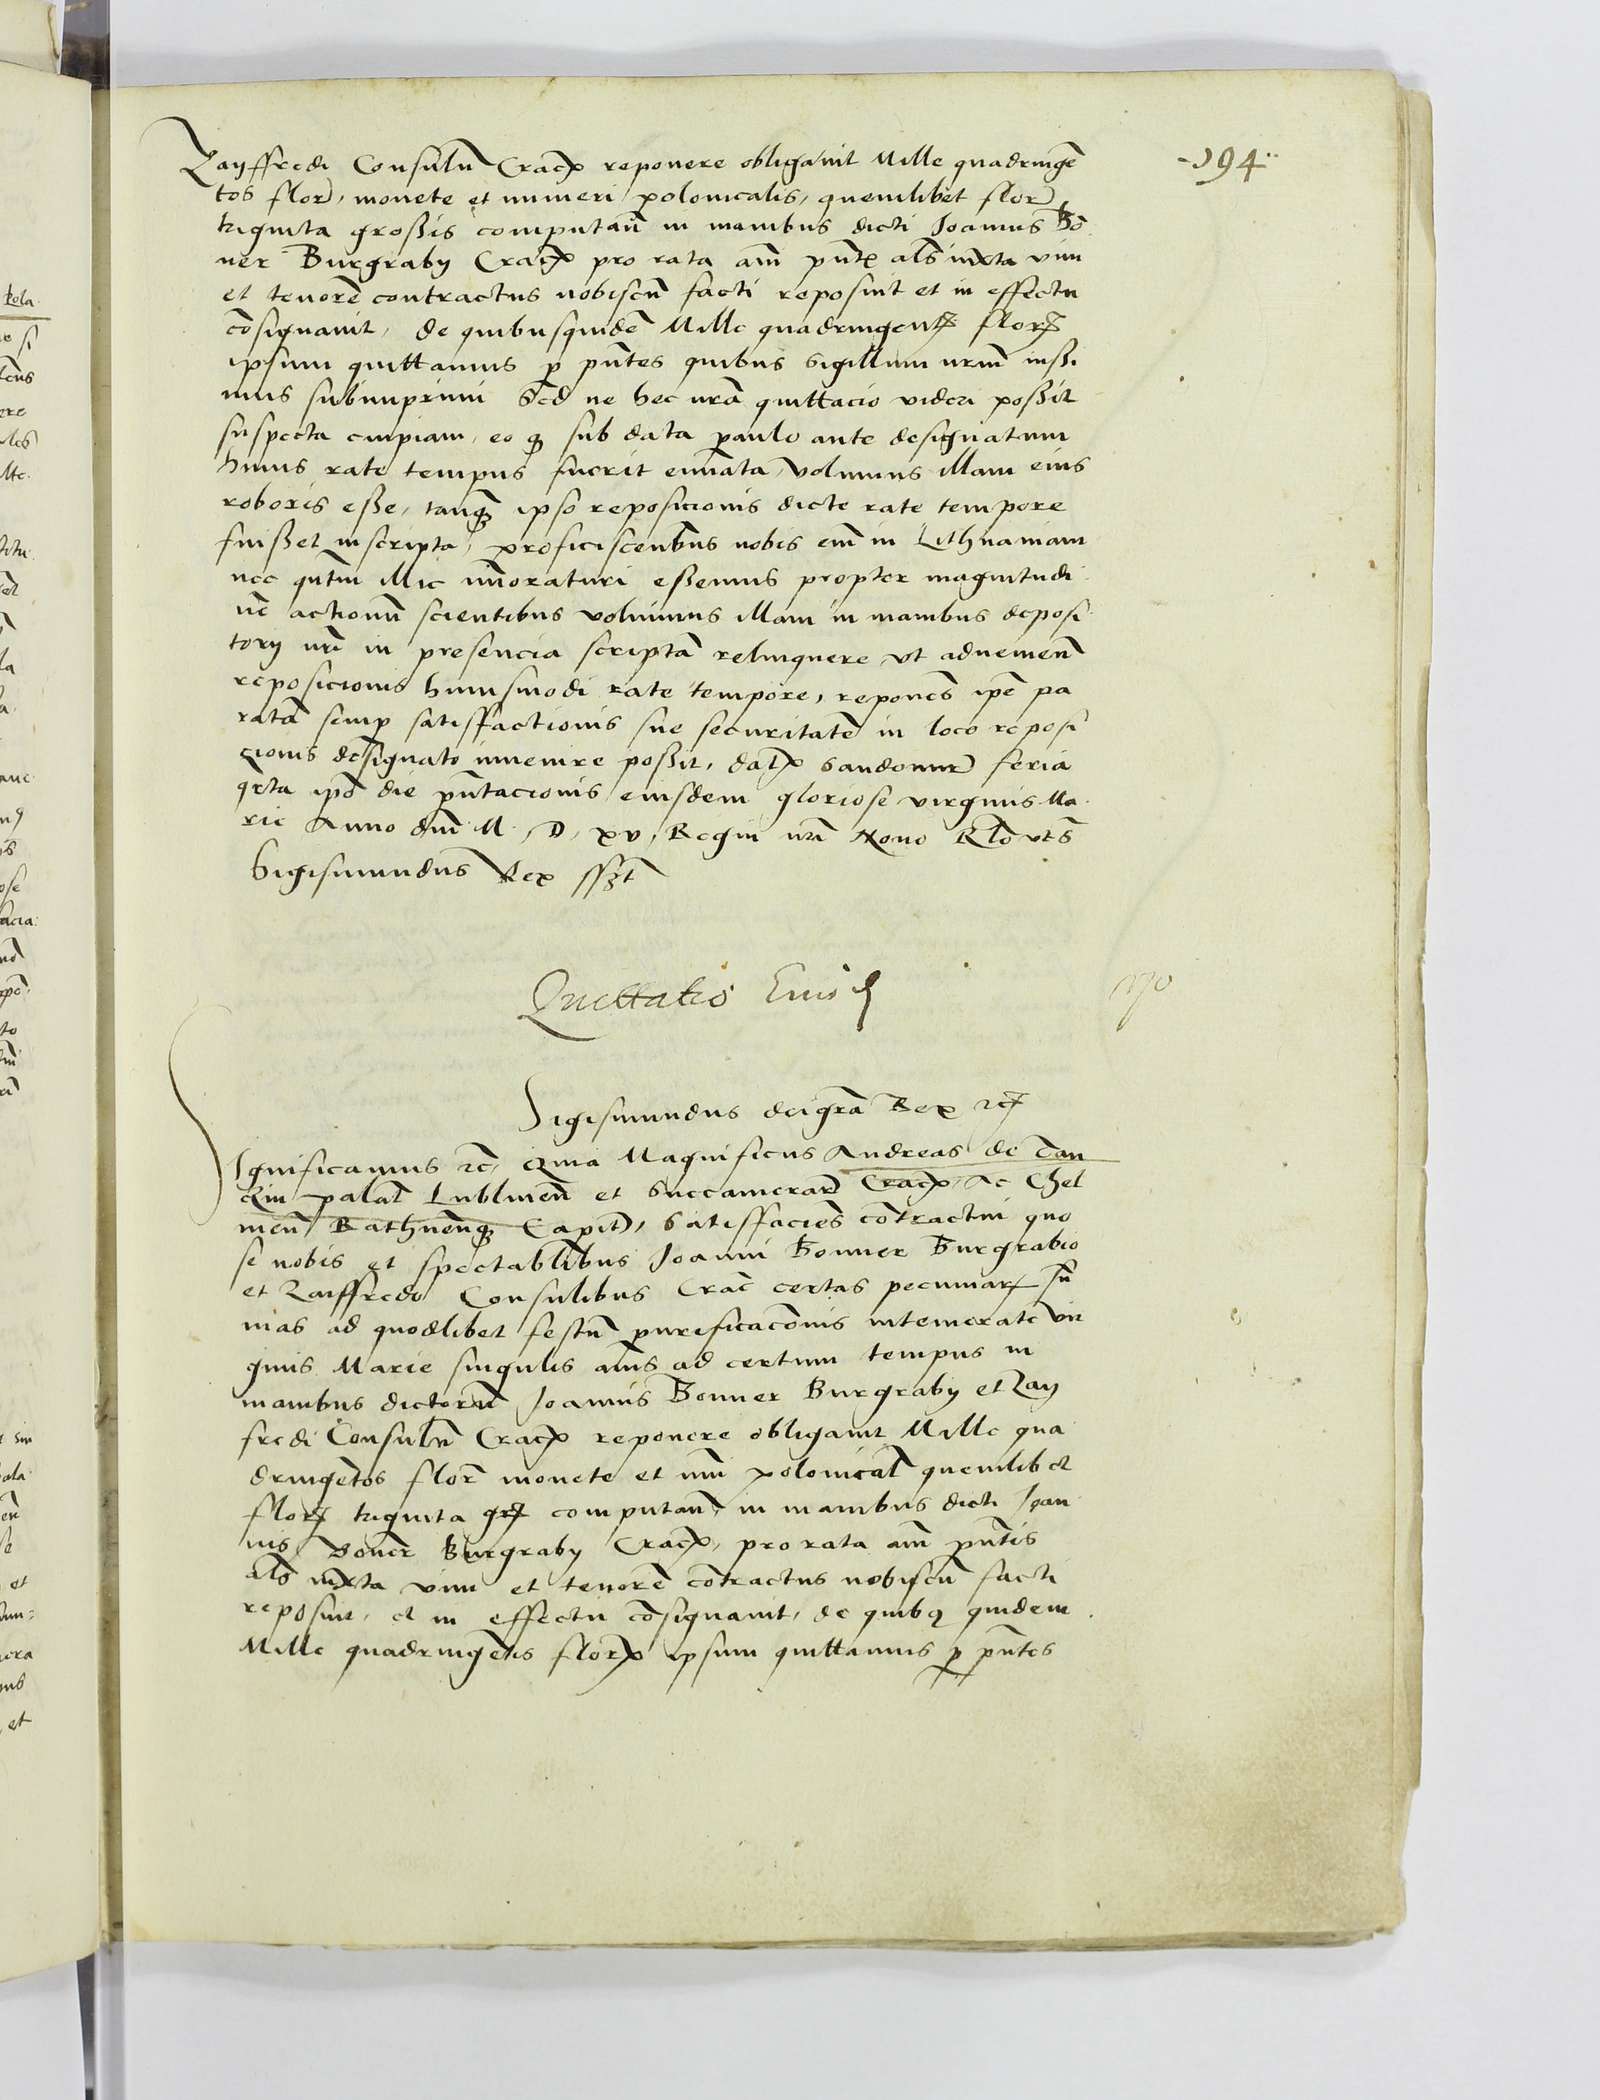 194
Zayffredi Consulū Cracꝫ reponere obligavit Mille quadringē
tos flor, monete et numeri polonicalis, quemlibet flor
triginta grossis computañ in manibus dicti Joannis Bo
ner Burgraby Cracꝫ pro rata añi pñtꝭ als iuxta vim
et tenorē contractus nobiscū facti reposuit et in effectu
cōsignavit, de quibusquidē Mille quadringentꝭ florꝭ
ipsum quittamus ꝑ pñtes quibus sigillum nr̄m iussi
mus subimprimi Sed ne hec nr̄a quittacio videri possit
suspecta cuipiam, eo ꝙ sub data paulo ante designatum
huius rate tempus fuerit emanata, volumus illam eius
roboris esse, tanꝙ ipso reposicionis dicte rate tempore
fuisset inscripta, proficiscentibus nobis em̄ in Lithuaniam
nec qntm̄ illic im̄oraturi essemus propter magnitudi
nē actionū scientibus voluimus illam in manibus deposi
tory nr̄i in presencia scriptā relinquere vt advenienī
reposicionis huiusmodi rate tempore, reponēs ipe pa
ratā semꝑ satisfactionis sue securitatē in loco reposi
cionis designato invenire possit, datꝫ Sandomir feria
qrta ipō die pñtacionis eiusdem gloriose virginis Ma
rie Anno dn̄i M. D, xv, Regni nr̄i Nono Rl̄o vts
Sigismundus Rex sszt
Quittatio Eiusd
170
Sigismundus dei grā Rex ꝛcꝭ
Ignificamus ꝛc̄, Quia Magnificus Andreas de Tan
czin palat Lublineñ et Succamerar Cracꝫ, Ac Chel
meñ Rathneñꝙ Capit, Satisfaciēs cōtractui quo
se nobis et spectablibus Joanni Bonner Burgrabio
et Zaiffredo Consulibus Crac̄ certas pecuniarꝭ sū
mas ad quodlibet festū purificacōnis intemerate vir
ginis Marie singulis añis ad certum tempus in
manibus dictorū Joannis Bonner Burgraby et Zay
fredi Consulū Cracꝫ reponere obligavit Mille qua
dringētos flor̄ monete et nūi polonical̄ quemlibet
florꝭ triginta grꝭ computañ, in manibus dicti Joan
nis Boner Burgraby Cracꝫ, pro rata añi pñtis
als iuxta vim et tenorē cōtractus nobiscū facti
reposuit, et in effectu cōsignavit, de quibꝰ quidem
Mille quadringētis florꝫ ipsum quittamus ꝑ pñtes